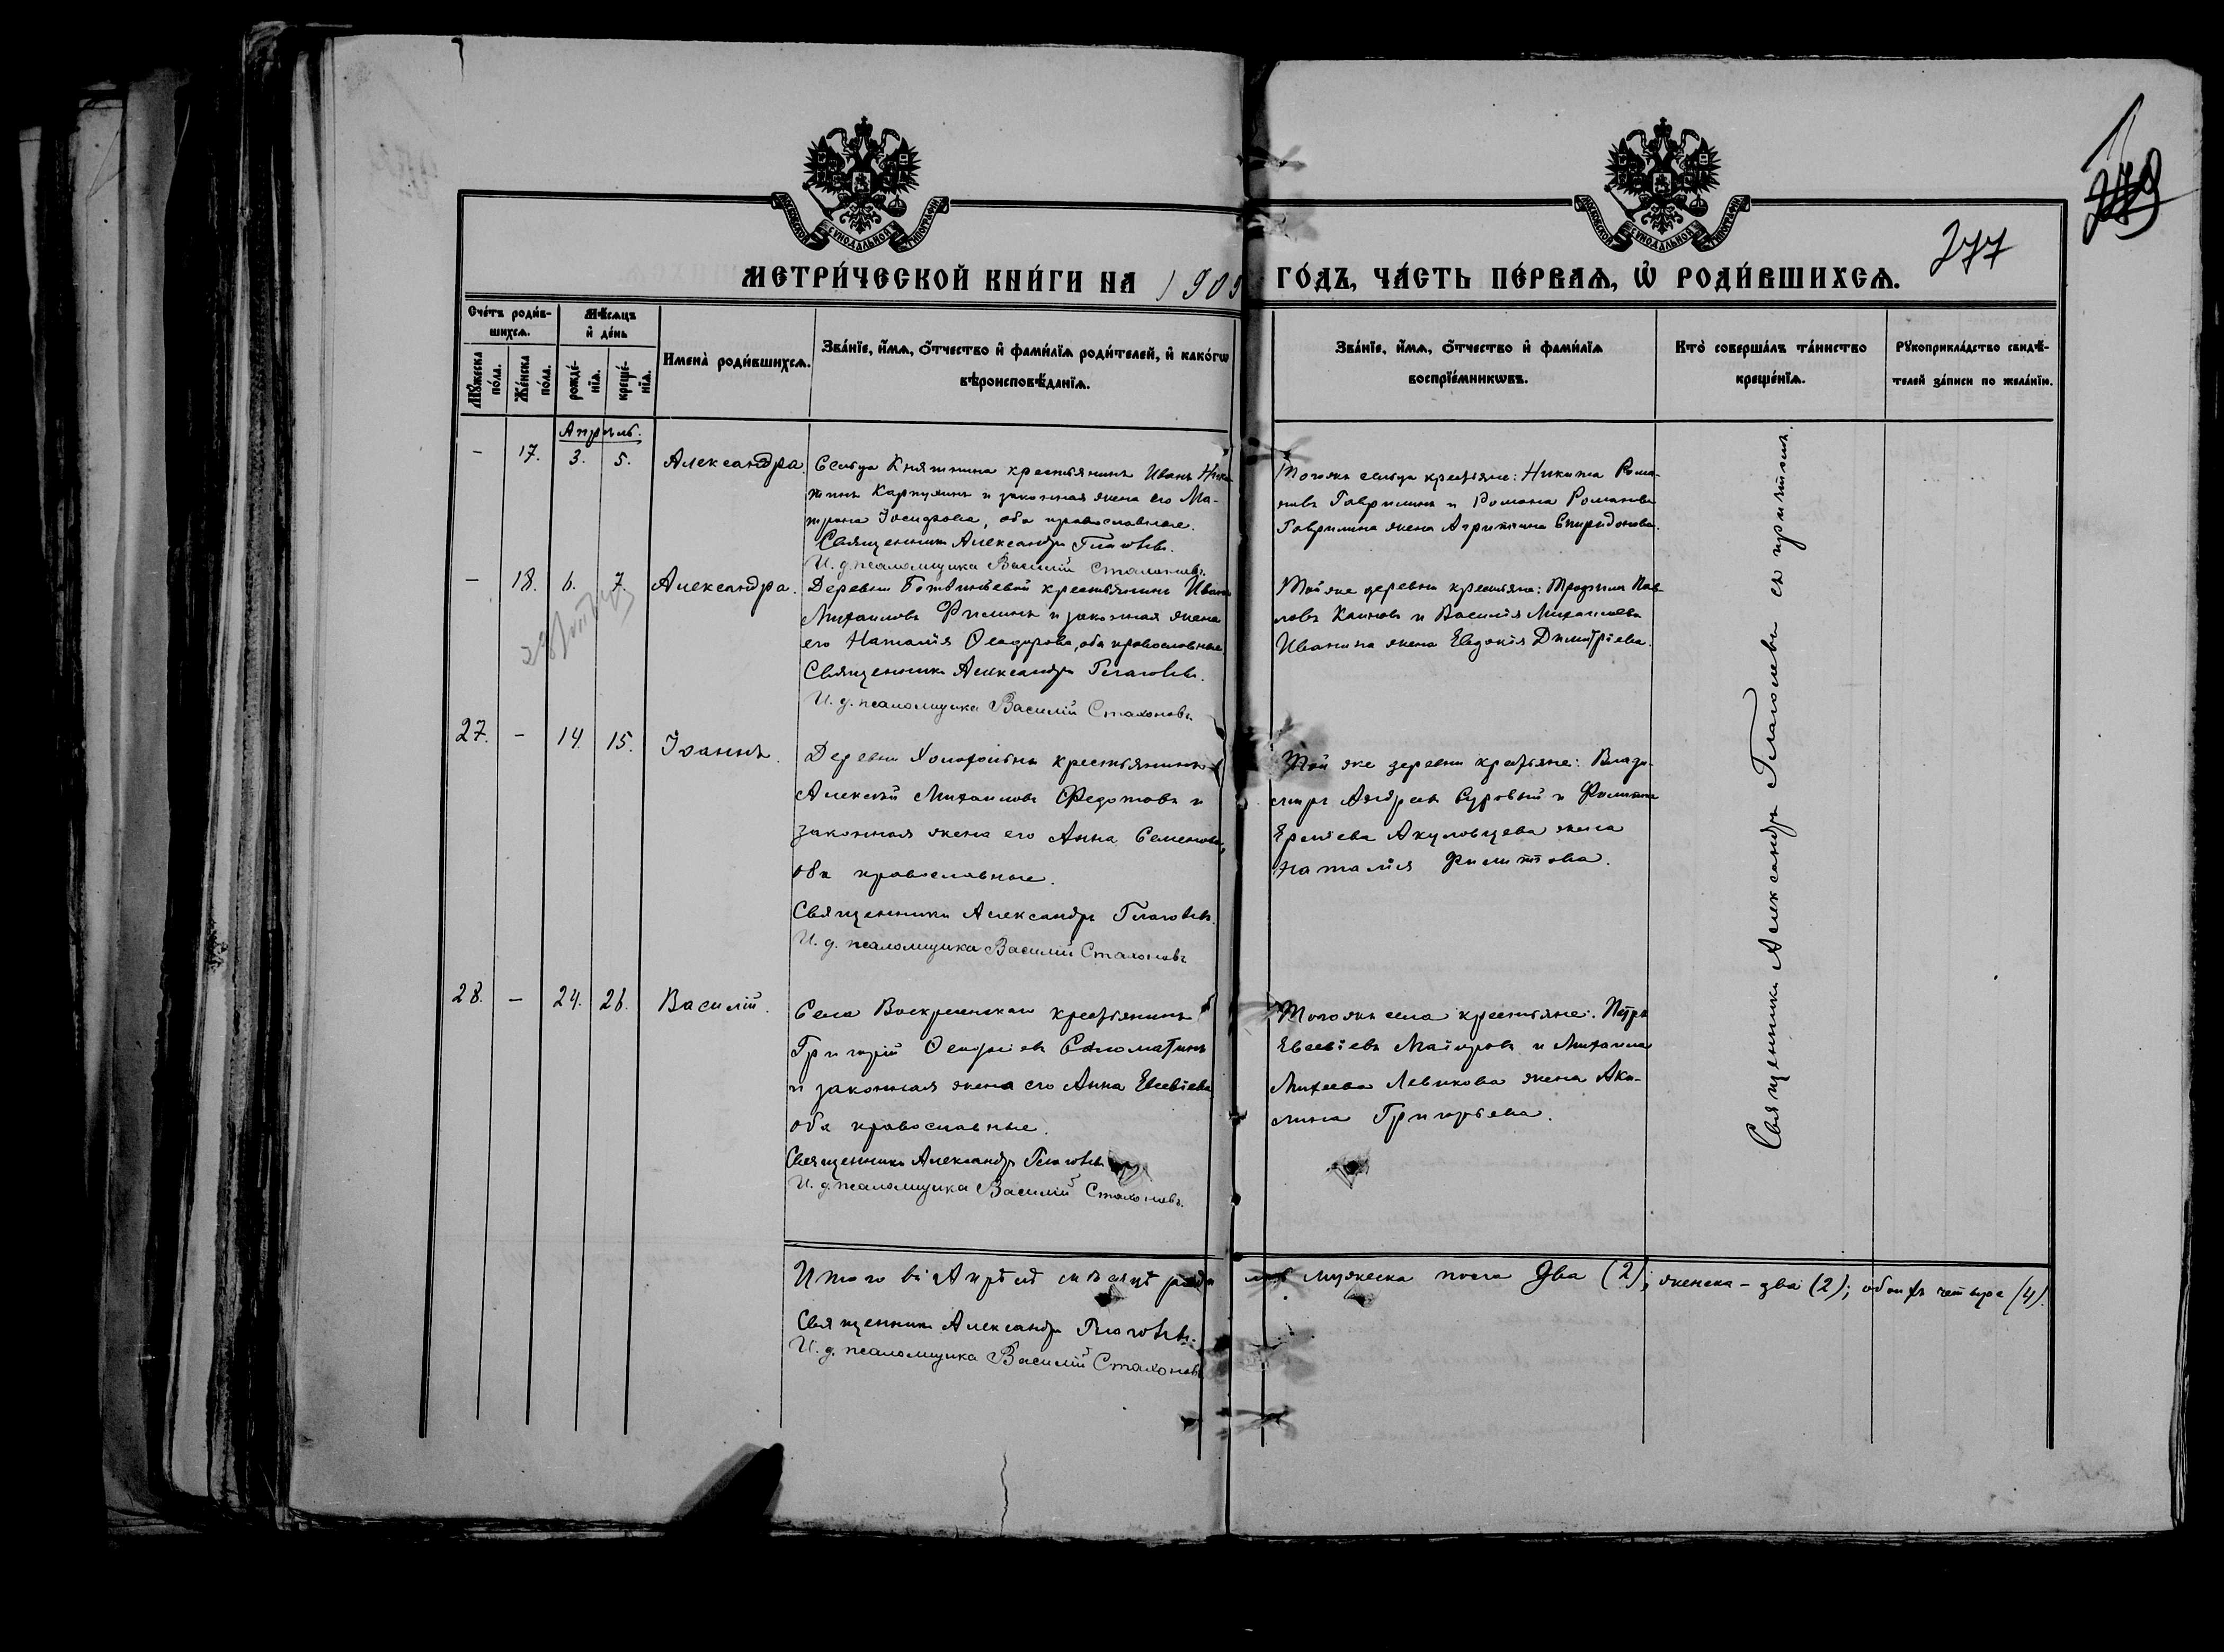 277
МЕТРИ́ЧЕСКОЙ КНИ́ГИ НА 1909 ГО́ДЪ, ЧА́СТЬ ПЕ́РВАѦ, Ѡ҆ РОДИ́ВШИХСѦ.
Сче́тъ роди́в-
шихсѧ.
Мѣ́сѧцъ
и҆ де́нь
Мꙋ́жеска
по́ла.
Же́нска
по́ла.
рожде́-
нїѧ.
креще́-
нїѧ.
Имена̀ роди́вшихсѧ.
Зва́нїе, и҆́мѧ, ѻ҆́тчество и҆ фами́лїѧ роди́телей, и҆ како́гѡ
вѣроисповѣ́данїѧ.
Зва́нїе, и҆́мѧ, ѻ҆́тчество и҆ фами́лїѧ
воспрїе́мникѡвъ.
Кто̀ соверша́лъ та́инство
креще́нїѧ.
Рꙋкоприкла́дство свидѣ́-
телей за́писи по жела́нїю.
Апрѣль.
- 17. 3. 5. Александра.
Сельца Княтнина крестьянинъ Иванъ Ники-
тинъ Карпухинъ и законная жена его Ма-
трона Іосифова, оба православные.
Священникъ Александръ Глаголевъ.
И. д. псаломщика Василій Стахановъ.
Тогожъ сельца крестьяне: Никита Рома-
новъ Гаврилинъ и Романа Романова
Гаврилина жена Агриппина Спиридонова.
- 18. 6. 7. Александра.
Деревни крестьянинъ Иванъ
Михаиловъ Филинъ и законная жена
его Наталія Ѳеодорова, оба православные.
Священникъ Александръ Глаголевъ.
И. д. псаломщика Василій Стахановъ.
Той же деревни крестьяне: Трофимъ Пав-
ловъ Климовъ и Василія Михаилова
Иванина жена Евдокія Димитріева.
27. - 14. 15. Іоаннъ.
Деревни крестьянинъ
Алексѣй Михаиловъ Федотовъ и
законная жена его Анна Семенова,
оба православные.
Священникъ Александръ Глаголевъ.
И. д. псаломщика Василій Стахановъ
Той же деревни крестьяне: Влади-
миръ Андреевъ Суровый и Филиппа
Ермѣева Акуловцева жена
Наталія Филиппова.
28. - 24. 26. Василій.
Села Воскресенскаго крестьянинъ
Григорій Саломатинъ
и законная жена его Анна Евсевіева
оба православные.
Священникъ Александръ Глаголевъ
И. д. псаломщика Василій Стахановъ.
Тогожъ села крестьяне: Петръ
Евсевіевъ Маіоровъ и Михаила
Михеева Левикова жена Аки-
лина Григорьева.
Священникъ Александръ Глаголевъ съ причтомъ.
Итого въ Апрѣлѣ мѣсяцѣ родилось мужеска пола два (2); женска - два (2); обоихъ четыре (4).
Священникъ Александръ Глаголевъ.
И. д. псаломщика Василій Стахановъ